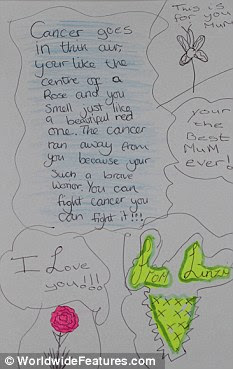 Cancer goes
in thin air,
your like the
centre of a
Rose and you
Smell just like
a beautiful red
one. The cancer
ran away from
you because your
Such a brave
Worrior. You can
fight cancer you
can fight it!!!
This is
for you
Mum!
your
the
Best
MuM
ever!
I Love
you!!!
From Linzy
© WorldwideFeatures.com